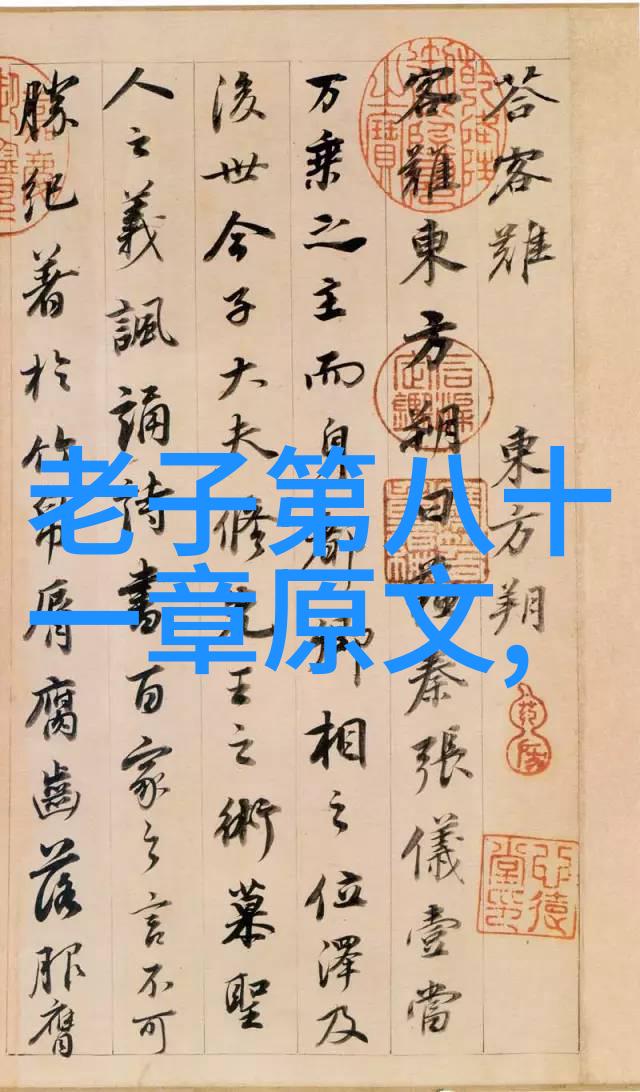 答客难
東方朔
客難東方朔曰蘇秦張儀壹當
万乗之主而身都卿相之位澤及
後世今子大夫修先王之術慕聖
人之義諷誦詩書百家之言不可
勝紀著於竹帛脣腐齒落服膺
老子第八十
一章原文,